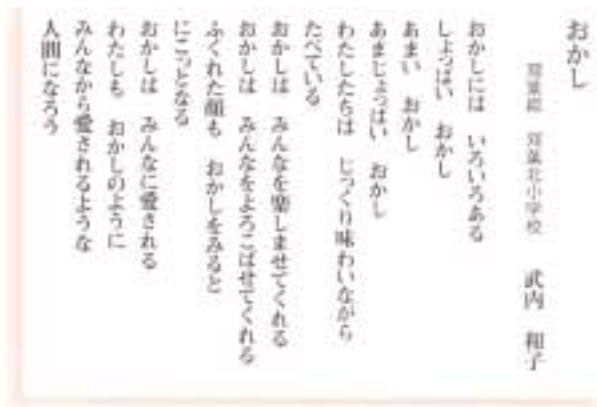 おかし
双葉郡 双葉北小学校 武内 和子
おかしには いろいろある
しょっぱい おかし
あまい おかし
あまじょっぱい おかし
わたしたちは じっくり味わいながら
たべている
おかしは みんなを楽しませてくれる
おかしは みんなをよろこばせてくれる
ふくれた顔も おかしをみると
にこっとなる
おかしは みんなに愛される
わたしも おかしのように
みんなから愛されるような
人間になろう